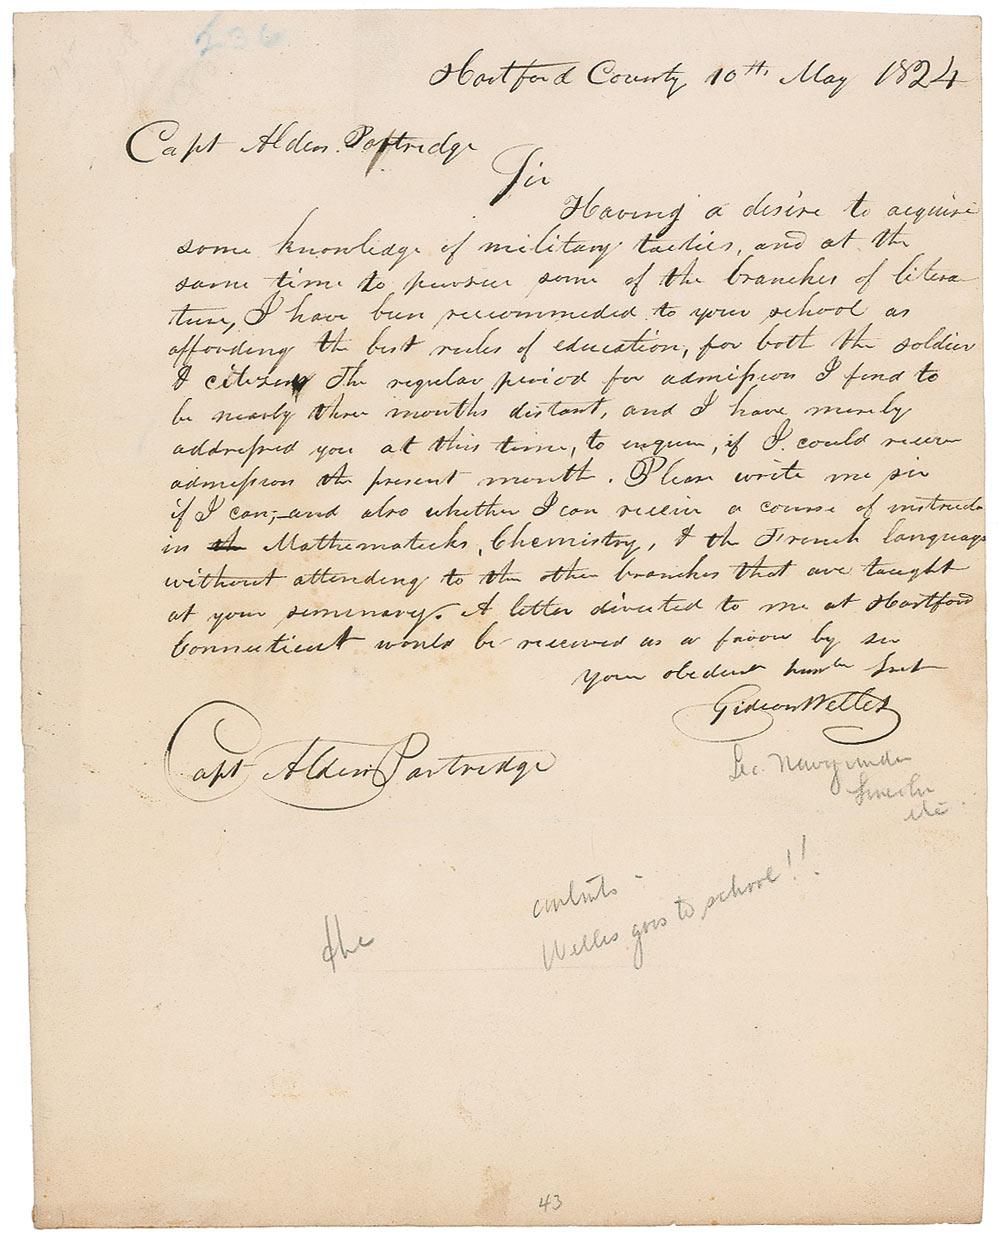 236
Hartford County 10th May 1824
Capt Alden Partridge
Sir
Having a desire to acquire
some knowledge of military tactics, and at the
same time to pursue some of the branches of litera
ture, I have been recommeded to your school as
affording the best rules of education, for both the soldier
& citizen The regular period for admission I find to
be nearly three months distant, and I have merely
addressed you at this time, to enquire, if I could receive
admission the present month. Please write me sir
if I can; and also whether I can receive a course of instructi
in the Mathematicks, Chemistry, & the French language
without attending to the other branches that are taught
at your seminary. A letter directed to me at Hartford
Connecticut would be received as a favour by sir
your obedient humble Servt
Gideon Welles
Capt Alden Partridge
Sec. Navy under
Lincoln
etc
contents -
Welles goes to school!!
the
43